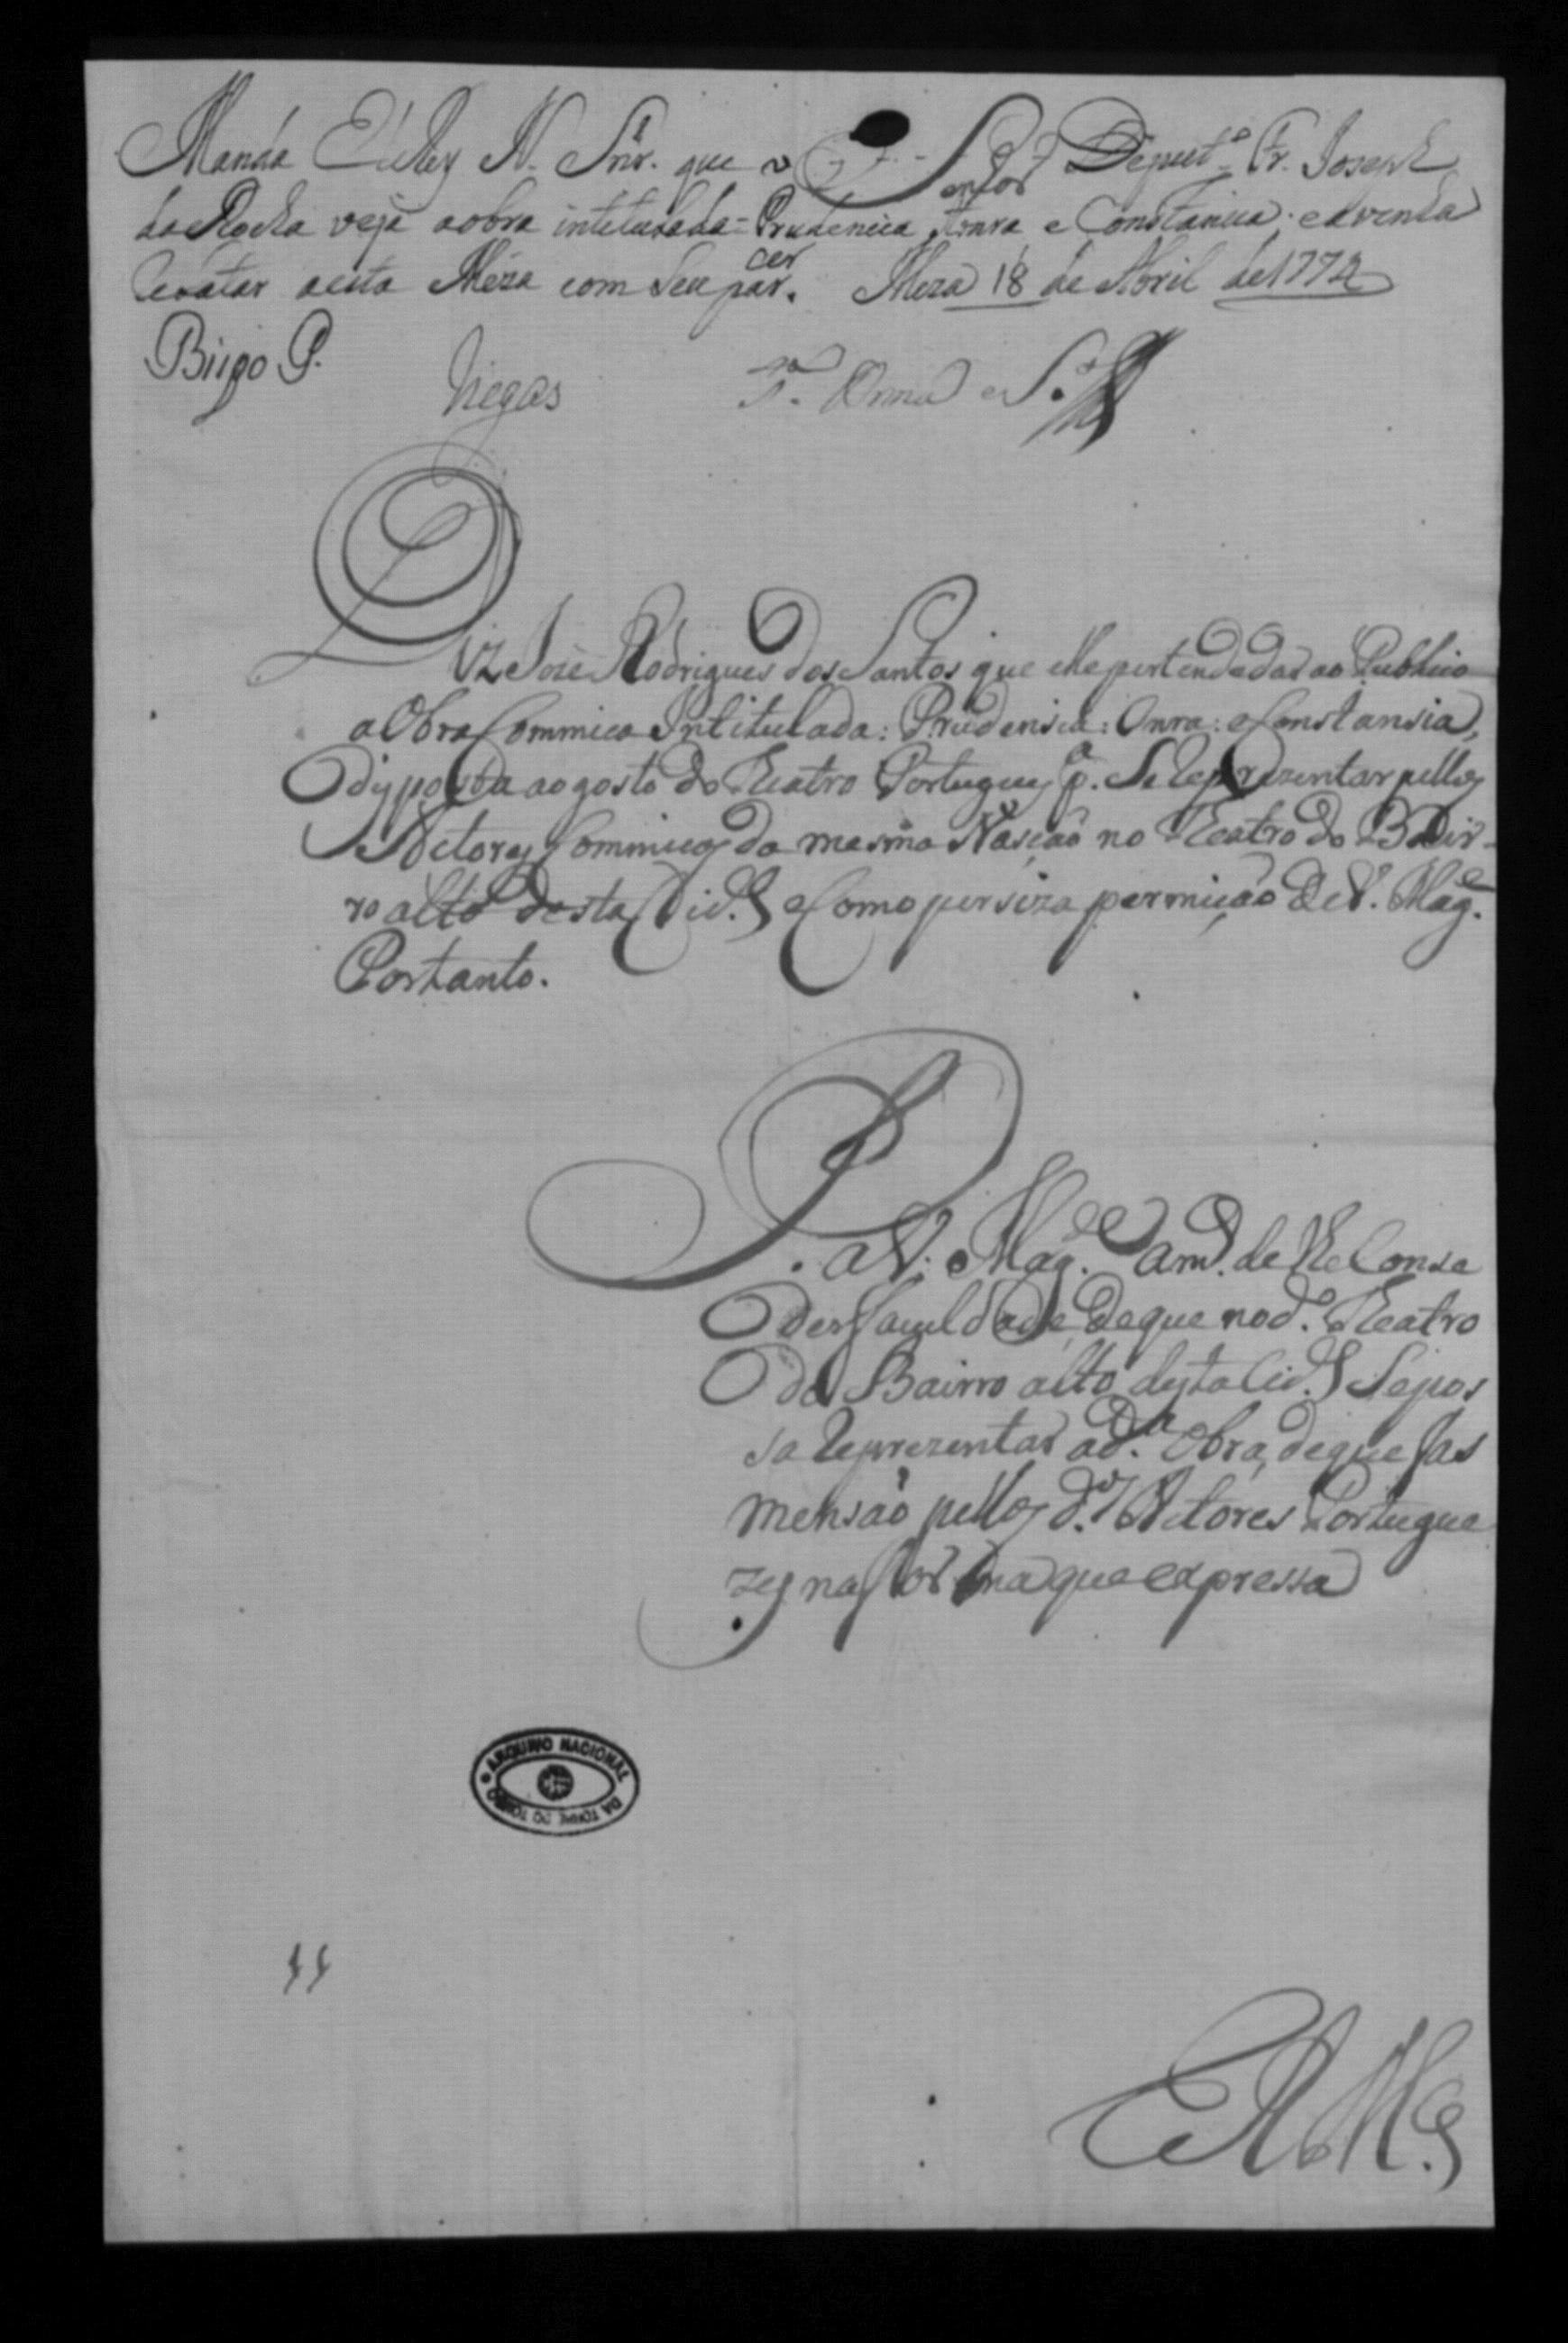 Manda ElRey N. Snr. que o Senhor Deput.º Fr. Joseph
da Rocha veja a obra intetulada = Prudencia, honra e Constancia; e a venha
relatar nesta Meza com seu parcer. Meza 18 de Abril de 1772
Bispo P.
Viegas
Diz Joze Rodrigues dos Santos que elle pertende dar ao Publico
a Obra Commica Intitulada: Prudensia: Onra: e Constansia,
dysposta ao gosto do Teatro Portuguey p.ª Se Reprezentar pelloy
Actorey Commicoy da mesma Nasção no Teatro do Bair-
ro alto desta Cid.e e Como perciza permição de V. Mag.e
Portanto.
P. a V. Mag.e Am.d de lhe Conse
der faculdade de que no d.º Teatro
do Bairro alto deyta Cid.e Se pos
sa Reprezentar a d.ª Obra, de que fas
mensão pelloy d.os Actores Portugue
zey na forma que expressa
ARQUIVO NACIONAL DA TORRE DO TOMBO
E R M.ce